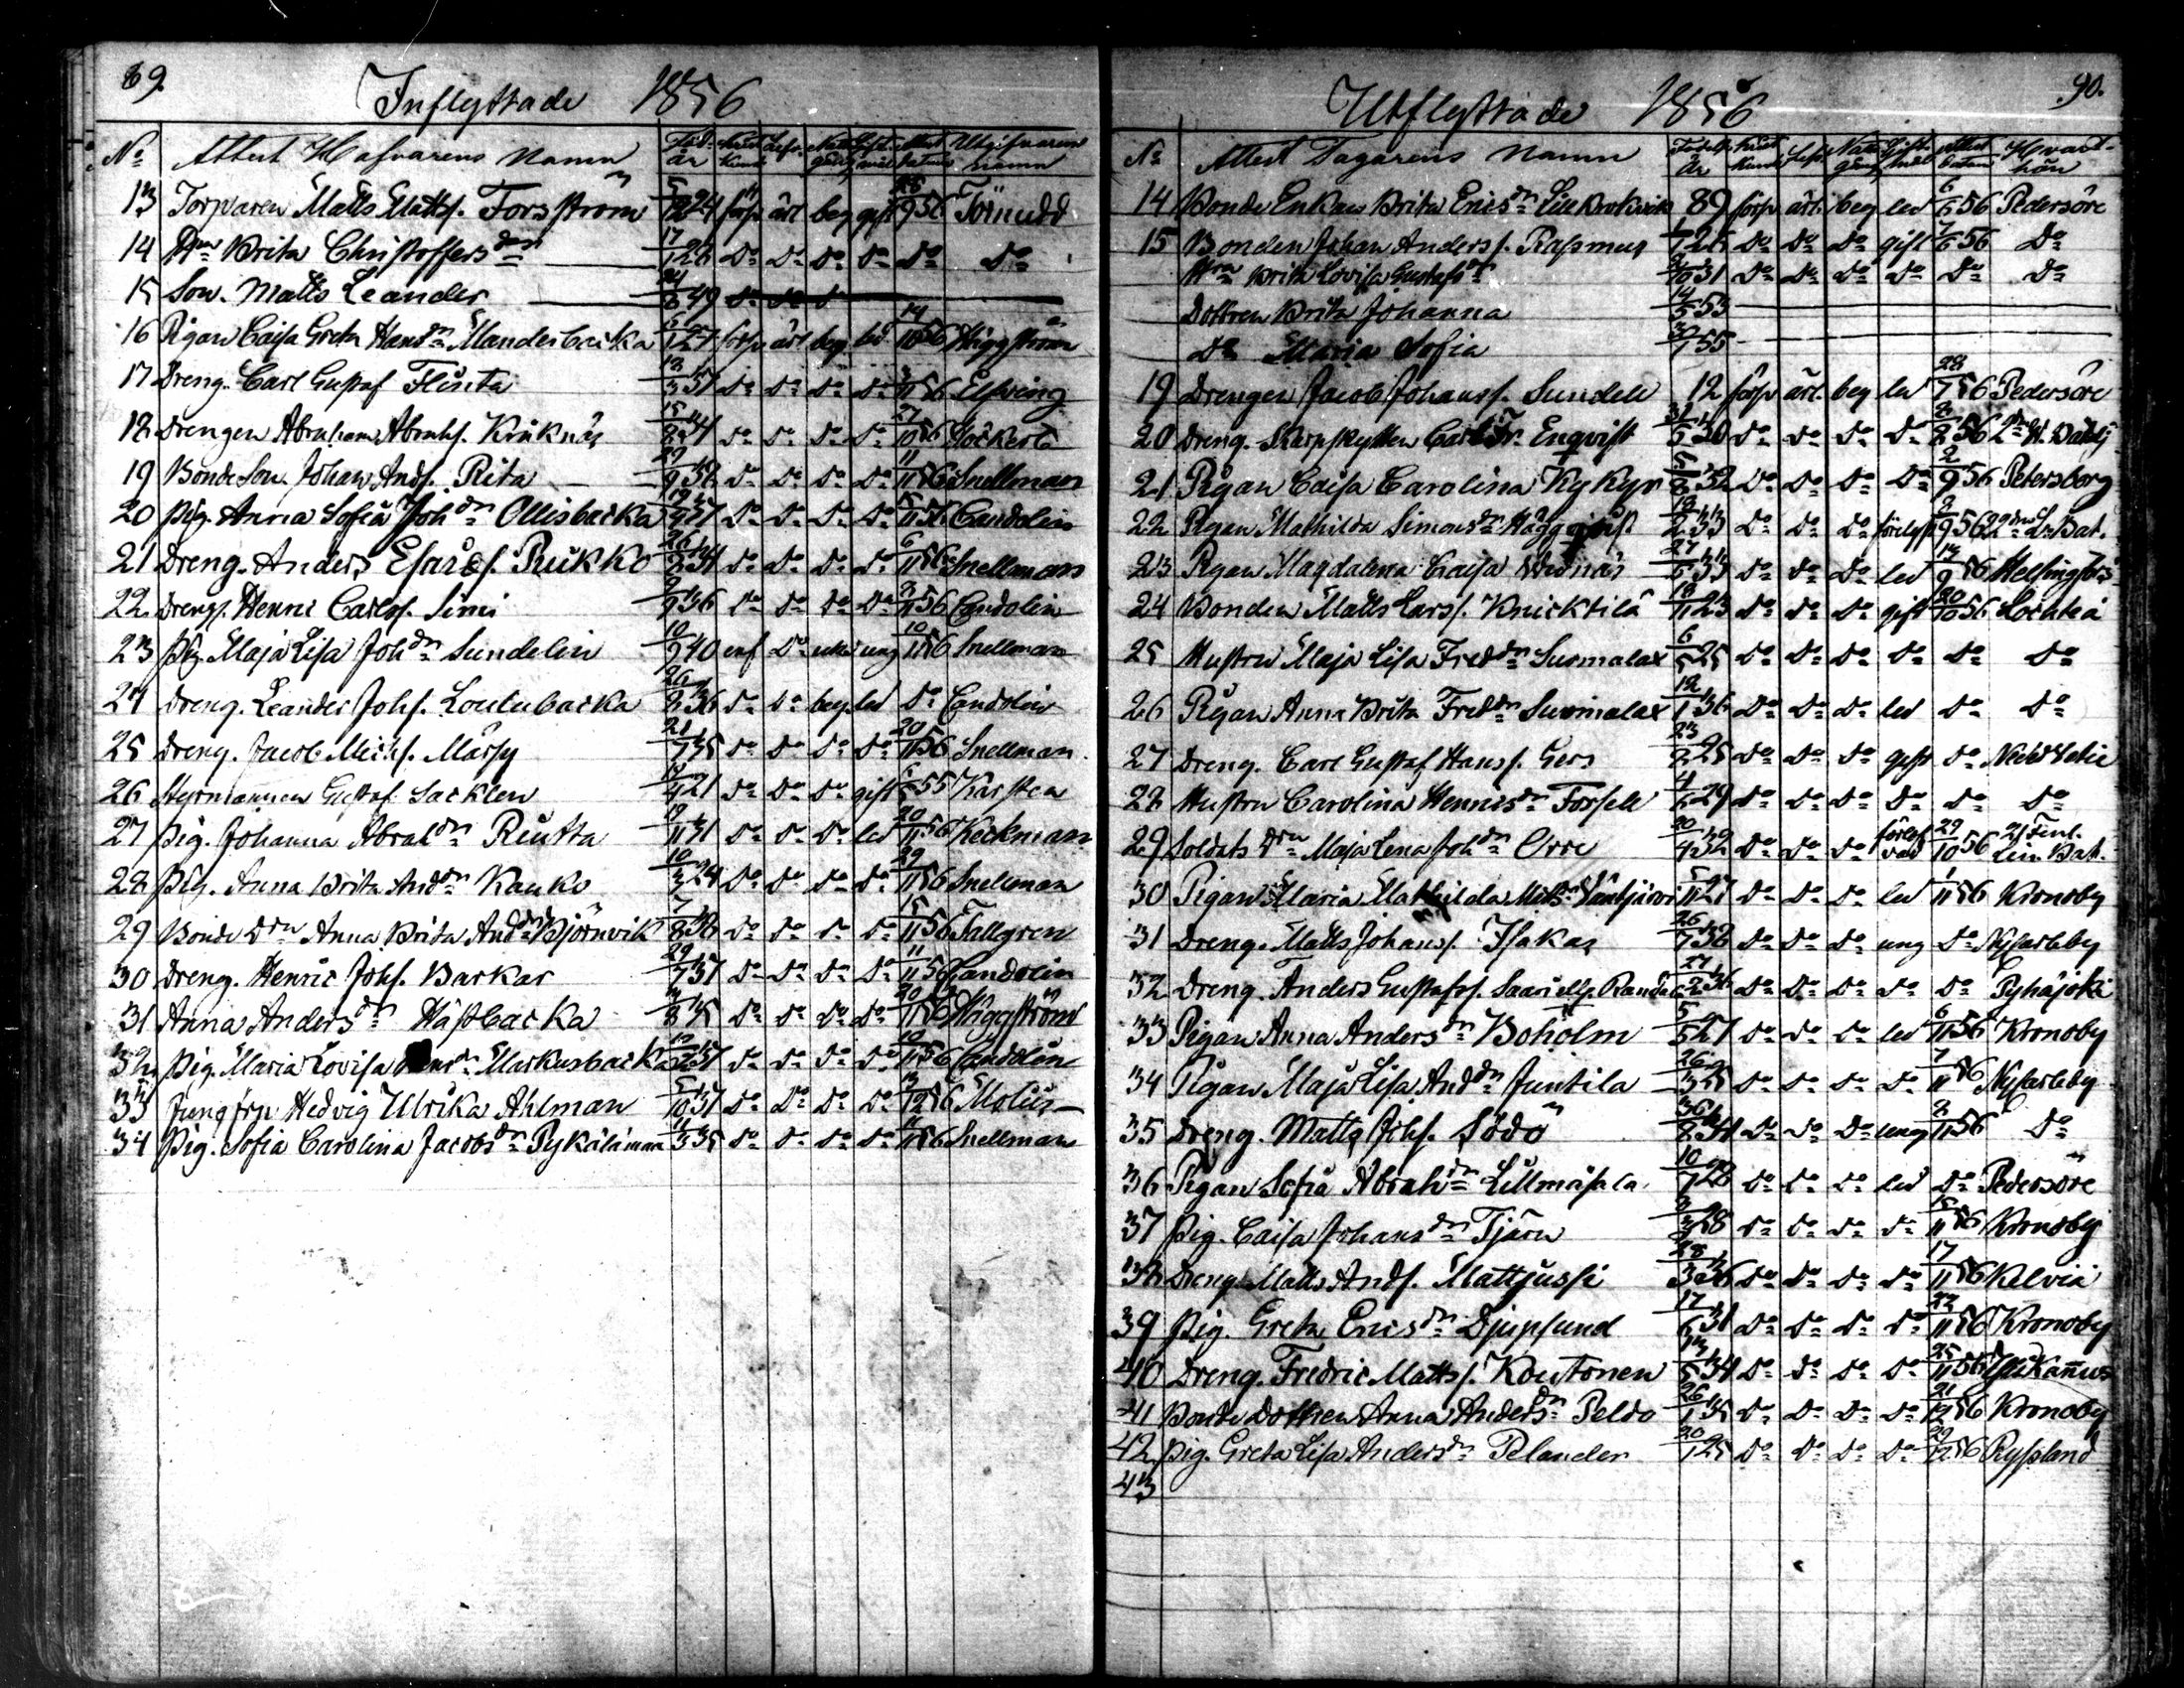 89.
Inflyttade 1856
No Attest Hafvarens Namn Föd. år Namn
13 Torparen Matts Matts f. Forsström 24 förp ärl beg gift 56 Törnudd
14 Hru Britta Christoffers dr 17/1 28 Do Do Do Do Do Do
15 Son. Matts Leander 49
16 Pigan Caisa Greta Hans dr Manderbacka 27 förp ärl beg led 14/10 56 Häggström
17 Dreng. Carl Gustaf Flinta 12/3 37 Do Do Do Do 56 Elfving
18 Drengen Abraham Abrahs. Kriknäs 15/8 34 Do Do Do Do 27/10 56
19 Bonde Son. Johan Ands. Rita 38 Do Do Do Do 11/11 56 Snellman
20 Pig. Anna Sofia Joh dr Ollisbacka 37 Do Do Do Do 15/11 56 Candolin
21 Dreng. Anders Esaias f. Pukko 34 Do Do Do Do 6/11 56 Snellman
22 Drengs. Henric Carls f. Simi 36 Do Do Do Do 56 Candolin
23 Pig. Maja Lisa Joh dr Sundelin 40 enf Do ung 10/11 56 Snellman
24 Dreng. Leander Johs. Loulubacka 26/8 36 Do Do beg led Do Candolin
25 Dreng. Jacob Michs. 21/7 35 Do Do Do Do 20/11 56 Snellman
26 Styrmannen Gustaf Sacklen 21 Do Do Do gift 55 Karsten
27 Pig. Johanna Abrah dr Riutta 19/11 31 Do Do Do led 20/11 56 Keckman
28 Pig. Anna Brita And dr Kauko 10/3 24 Do Do Do Do 29/11 56 Snellman
29 Bonde Drn Anna Brita And dr Björnvik 7/8 36 Do Do Do Do 15/11 56 Tallgren
30 Dreng. Henric Johs. Backar 29/7 37 Do Do Do Do 11/11 56 Candolin
31 Anna Anders dr Hästbacka 35 Do Do Do Do 20/11 56 Häggström
32 Pig. Maria Lovisa dr Markusbacka 37 Do Do Do Do 10/11 56 Candolin
33 Jungfrn Hedvig Ulrika Ahlman 5/10 37 Do Do Do Do 12 56
34 Pig. Sofia Carolina Jacobs dr Pykälämaa 11/3 35 Do Do Do Do 11 56 Snellman
90.
Utflyttade 1856
No Attest Tagarens Namn Födels År
14 Bonde Enkan Brita Erics dr Lill 89 förp ärl. beg led 6/5 56 Pedersöre
15 Bonden Johan Anders f. Rasmus 25 Do Do Do gift 56 Do
Hru Brita Lovisa Gustafs dr 31 Do Do Do Do Do Do
Dottren Brita Johanna 14/5 53
Do Maria Sofia 55
19 Drengen Jacob Johans f. Sundell 12 förp ärl. beg led 28/7 56 Pedersöre
20 Dreng. Skarpskytten Carl Enqvist 30 Do Do Do Do 56
21 Pigan Caisa Carolina Kykyr 32 Do Do Do Do 2/9 56 Petersborg
22 Pigan Mathilda Simons dr 33 Do Do Do 56 Bat.
23 Pigan Magdalena Caisa 27 33 Do Do Do led 9 56 Helsingfors
24 Bonden Matts Lars f. Knicktilä 18/11 23 Do Do Do gift 20/10 56 Lochteå
25 Hustru Maja Lisa Fred dr Suomalax 6/5 25 Do Do Do Do Do Do
26 Pigan Anna Brita Fred dr Suomalax 12/1 36 Do Do Do led Do Do
27 Dreng. Carl Gustaf Hans f. Gers 23/2 25 Do Do Do gift Do
28 Hustru Carolina Henrics dr Forsell 4/6 29 Do Do Do Do Do Do
29 Soldats Drn Maja Lena Joh dr Orre 20/4 32 Do Do Do 29/10 56 Finl. Bat.
30 Pigan Maria Mathilda Matts dr 5/11 27 Do Do Do led 56 Kronoby
31 Dreng. Matts Johans f. Isakas 26/7 38 Do Do Do ung Do Nykarleby
32 Dreng. Anders Gustafs f. Saari ell. 27/2 36 Do Do Do Do Do Pyhäjoki
33 Pigan Anna Anders dr Boholm 5/5 27 Do Do Do led 6/11 56 Kronoby
34 Pigan Maja Lisa And dr Juntila 26/3 Do Do Do Do 7/11 56 Nykarleby
35 Dreng. Matts Johs. Södö 34 Do Do Do ung 11 56 Do
36 Pigan Sofia Abrah dr Lillmäsala 10/7 28 Do Do Do led Do Pedersöre
37 Pig. Caisa Johans dr Tjäru 3/3 28 Do Do Do Do 15/11 56 Kronoby
38 Dreng. Matts Ands. Mattjussi 28/3 36 Do Do Do Do 17/11 56 Kelviä
39 Pig. Greta Erics dr Djupsund 17/6 31 Do Do Do Do 22/11 56 Kronoby
40 Dreng. Fredric Matts f. Koutonen 34 Do Do Do Do 25/11 56 Ylikannus
41 Bonde Dottren Anna Anders dr Peldo 26/1 35 Do Do Do Do 21/12 56 Kronoby
42 Pig. Greta Lisa Anders dr Pelander 20/1 25 Do Do Do Do 29/12 56 Ryssland
43